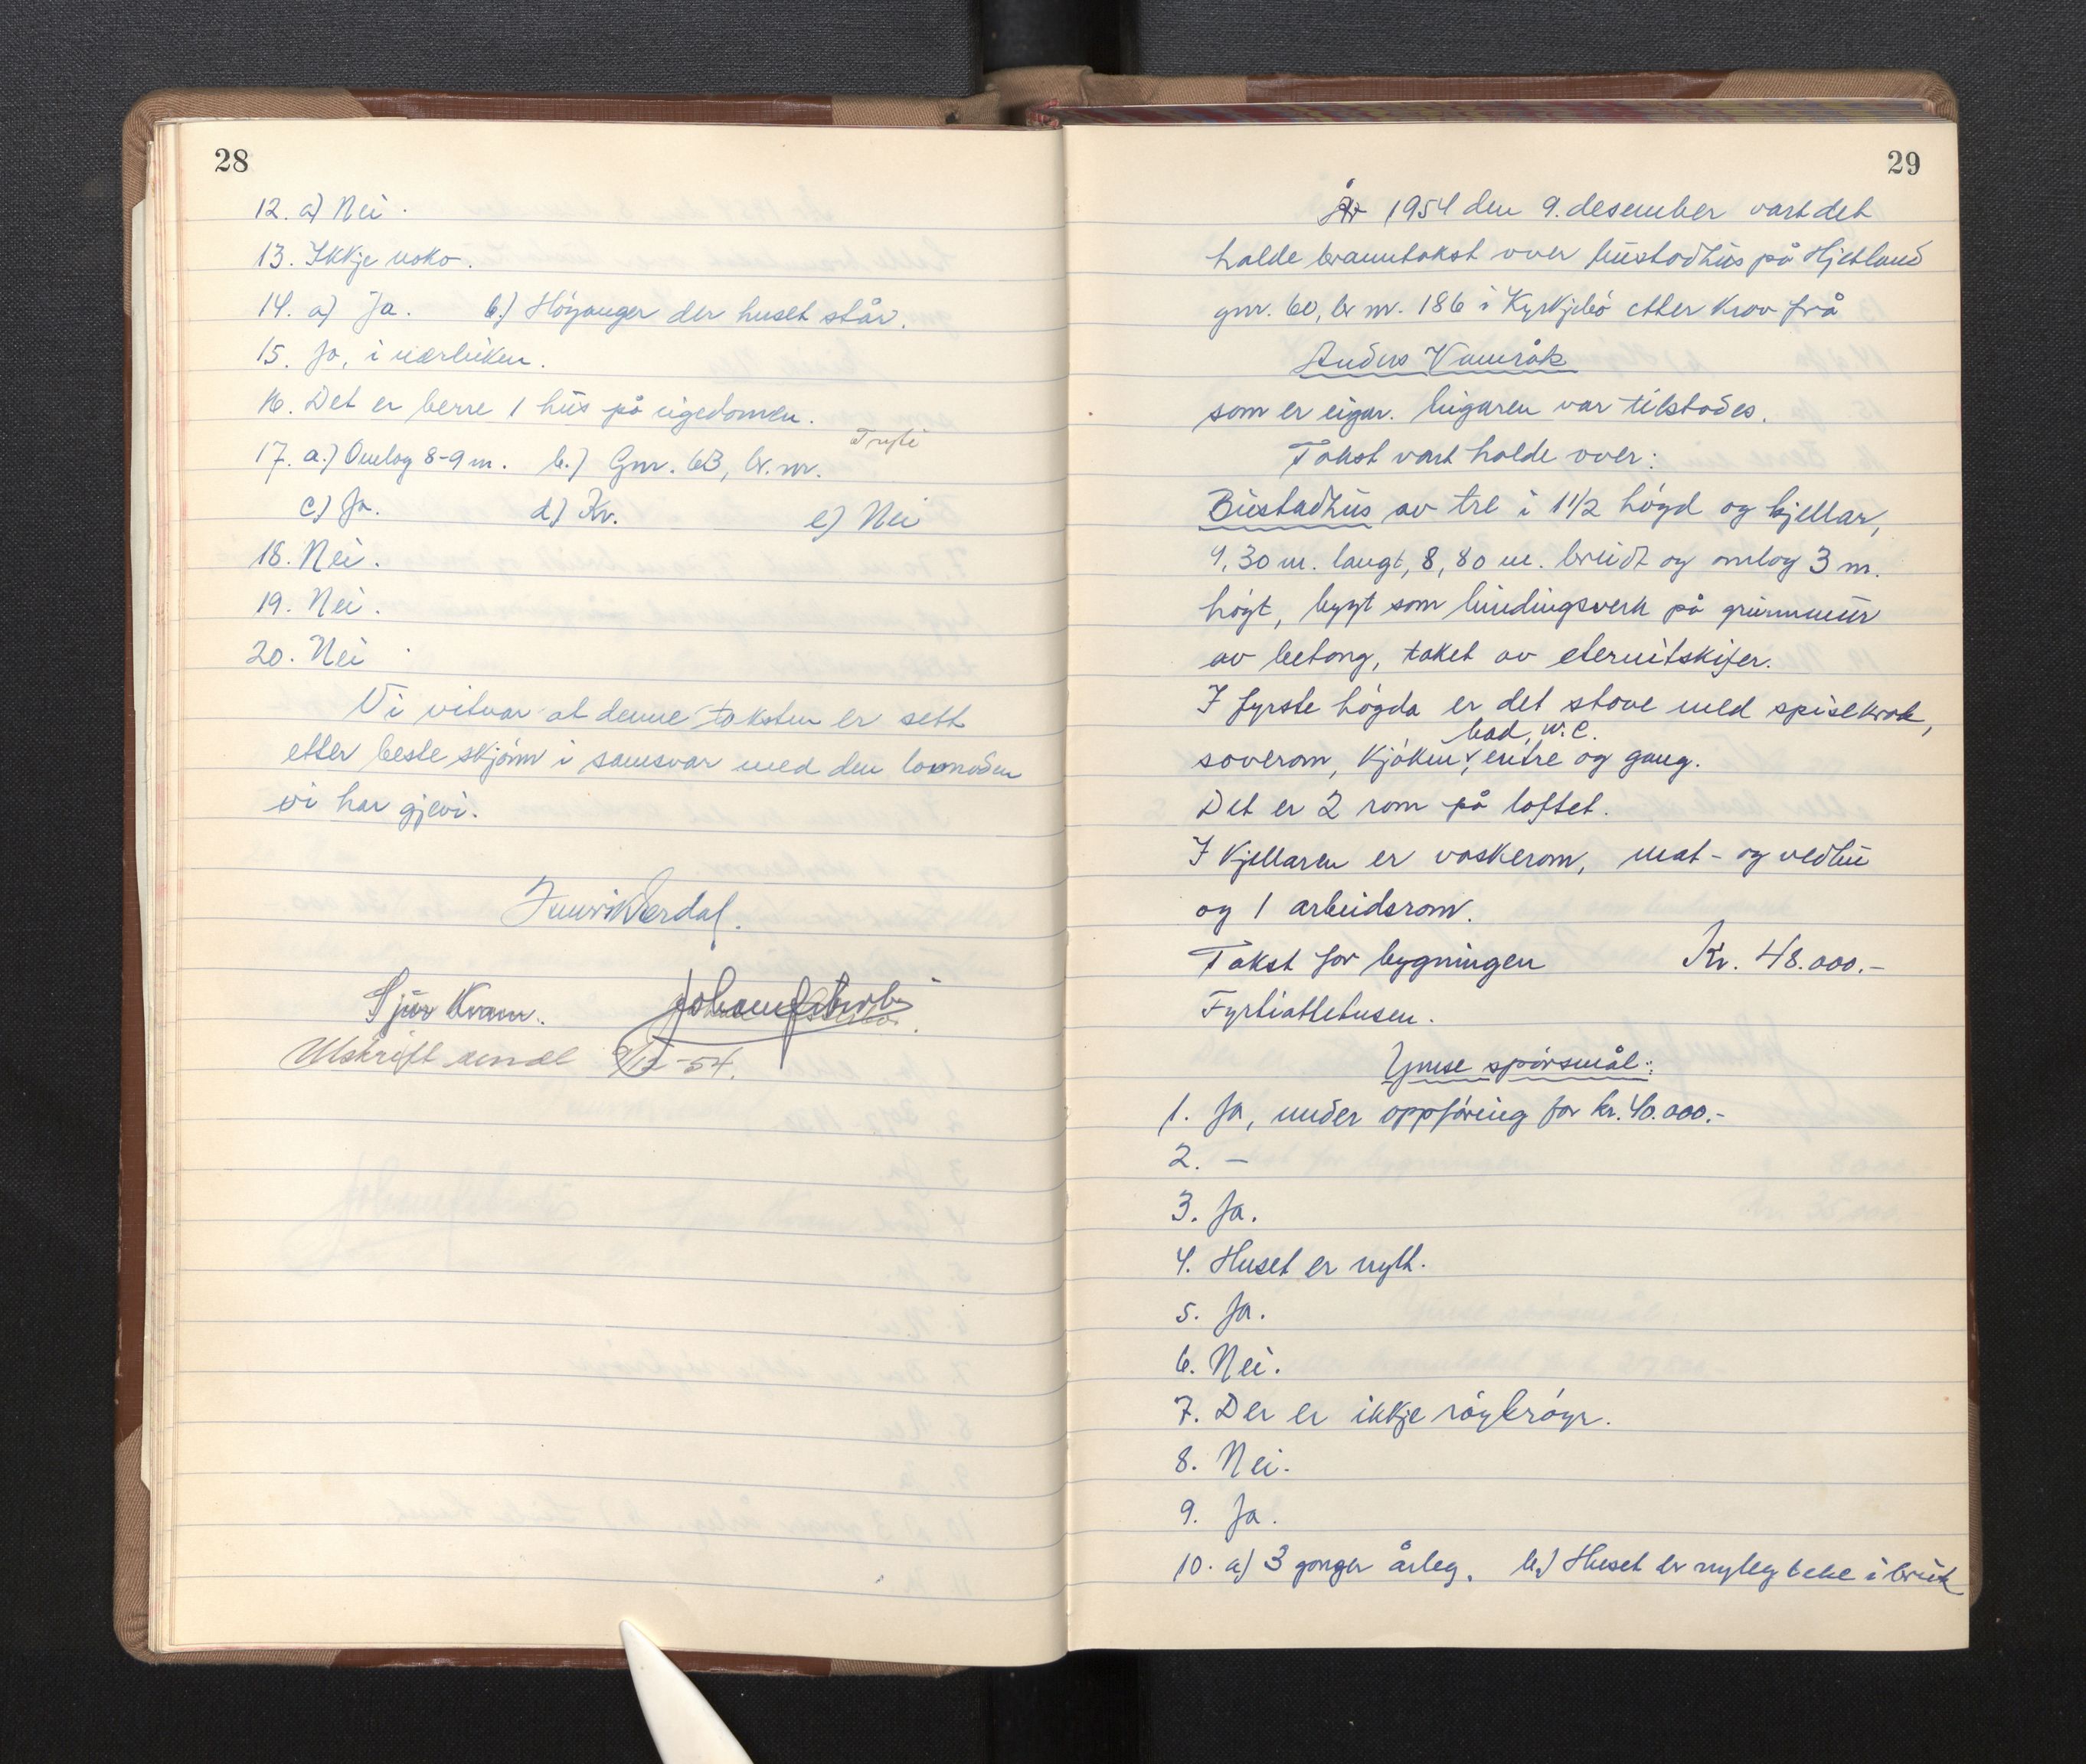 28
12. a) Nei.
13. Ikkje noko.
14. a) Ja. b.) Höyanger der huset står.
15. Ja, i nærleiken.
16. Det er berre 1 hus på eigedomen.
Tryti
17. a.) Omlag 8-9 m. b.) Gnr. 63, br. nr.
c) Ja. d) Kv. e) Nei
18. Nei.
19. Nei.
20. Nei.
Vi vitnar at denne taksten er sett
etter beste skjönn i samsvar med den lovnaden
vi har gjevi.
Sjur Kvam.
Utskrift sendt 9/12-54.
29
År 1954 den 9. desember vart det
halde branntakst over bustadhus på Hjetland
gnr. 60, br nr. 186 i Kyrkjebö etter krav frå
Anders Vamråk
som er eigar. Eigaren var tilstades.
Takst vart halde over:
Bustadhus av tre i 1 1/2 högd og kjellar,
9,30 m. langt, 8,80 m. breidt og omlag 3 m.
högt, bygt som bindingsverk på grunnmur
av betong, taket av eternitskifer.
I fyrste högda er det stove med spisekrok,
bad, w.c.
soverom, kjöken, entre og gang.
Det er 2 rom på loftet.
I kjellaren er vaskerom, mat- og vedbu
og 1 arbeidsrom.
Takst for bygningen Kr. 48.000.-
Fyrtiåttetusen.
Ymse spörsmål:
1. Ja, under oppföring for kr. 40.000.-
2. -
3. Ja.
4. Huset er nytt.
5. Ja.
6. Nei.
7. Der er ikkje röykröyr.
8. Nei.
9. Ja.
10. a) 3 gonger årleg. b.) Huset er nyleg teke i bruk